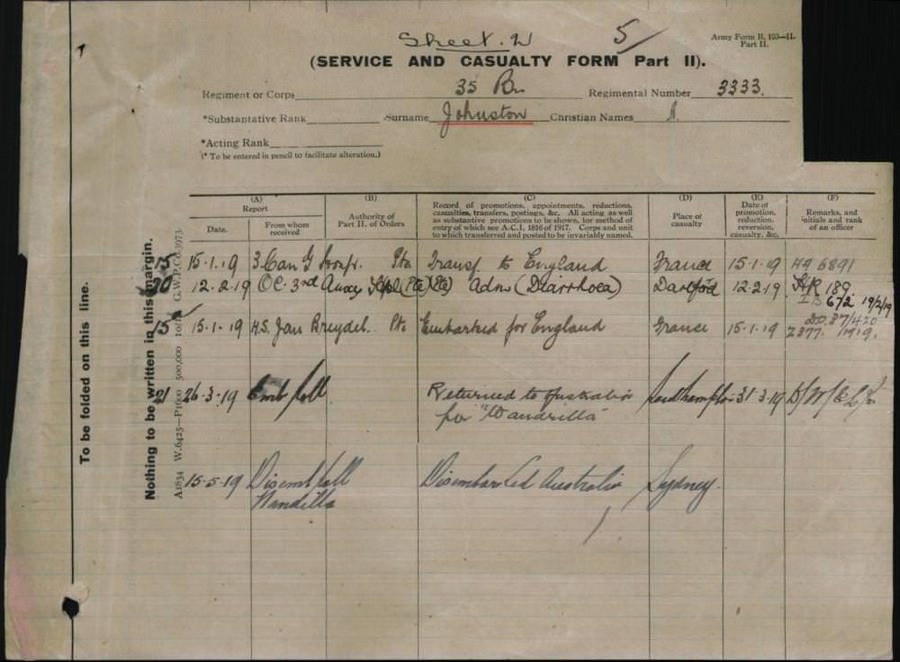 Sheet. 2 5/ Army Form B. 103—II.
Part II.
(SERVICE AND CASUALTY FORM Part II).
Regiment or Corps 35 Bn. Regimental Number 3333.
*Substantative Rank Surname Johnston Christian Names
*Acting Rank
(* To be entered in pencil to facilitate alteration.)
To be folded on this line.
Nothing to be written in this margin.
(A)
Report
Date.
From whom
received
(B)
Authority of
Part II. of Orders
(C)
Record of promotions, appointments, reductions,
casualties, transfers, postings, &c. All acting as well
as substantive promotions to be shown, for method of
entry of which see A.C.I. 1816 of 1917. Corps and unit
to which transferred and posted to be invariably named.
(D)
Place of
casualty
(E)
Date of
promotion,
reduction,
reversion,
casualty, &c.
(F)
Remarks, and
initials and rank
of an officer
15 15.1.19 3 Can G Hospl. Pte Transf. to England France 15.1.19 HQ 6891
30 12.2.19 OC. 3rd Auxy Hpl (Pte) Adm (Diarrhoea) Dartford 12.2.19 HR 189
672 19/2/19
15 15.1.19 H.S. Jan Breydel. Pte Embarked for England France 15.1.19
2377. 1919.
21 26.3.19 Emb roll Returned to Australia Southampton 31.3.19
for "Wandilla"
15.5.19 Disemb roll Disembarked Australia Sydney.
Wandilla